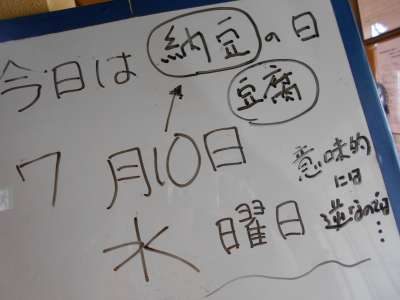 今日は納豆の日
豆腐
7月10日
水曜日
意味的
には
逆なのでは
…